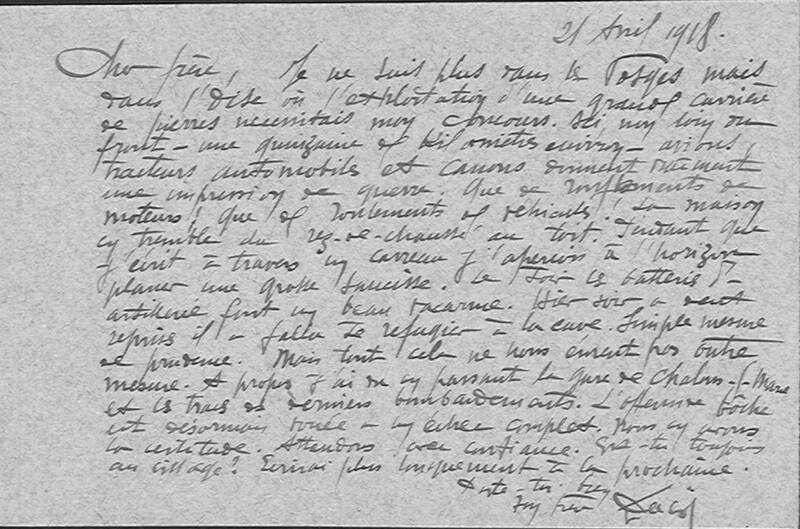 21 Avril 1918.
Cher frère, Je ne suis plus dans les Vosges mais
dans l'Oise où l'exploitation d'une grande carrière
de pierres nécessitait mon concours. Ici, non loin du
front - une quinzaine de kilomètres environ - avions,
tracteurs automobiles et canons donnent vraiment
une impression de guerre. Que de ronflements de
moteurs! que de roulements de véhicules! La maison
en tremble du rez-de-chaussée au toit. Pendant que
j'écris à travers un carreau j'aperçois à l'horizon
planer une grosse saucisse. Le soir les batteries d'-
artillerie font un beau vacarme. Hier soir à
reprises il a fallu se réfugier à la cave. Simple mesure
de prudence. Mais tout cela ne nous émeut pas outre
mesure. A propos j'ai vu en passant la gare de Chalons-s-Marne
et les traces de derniers bombardements. L'offensive bôche
est désormais vouée à un échec complet. Nous en avons
la certitude. Attendons avec confiance. Es-tu toujours
au village? Ecrirai plus longuement à la prochaine.
Porte-toi bien
Ton frère